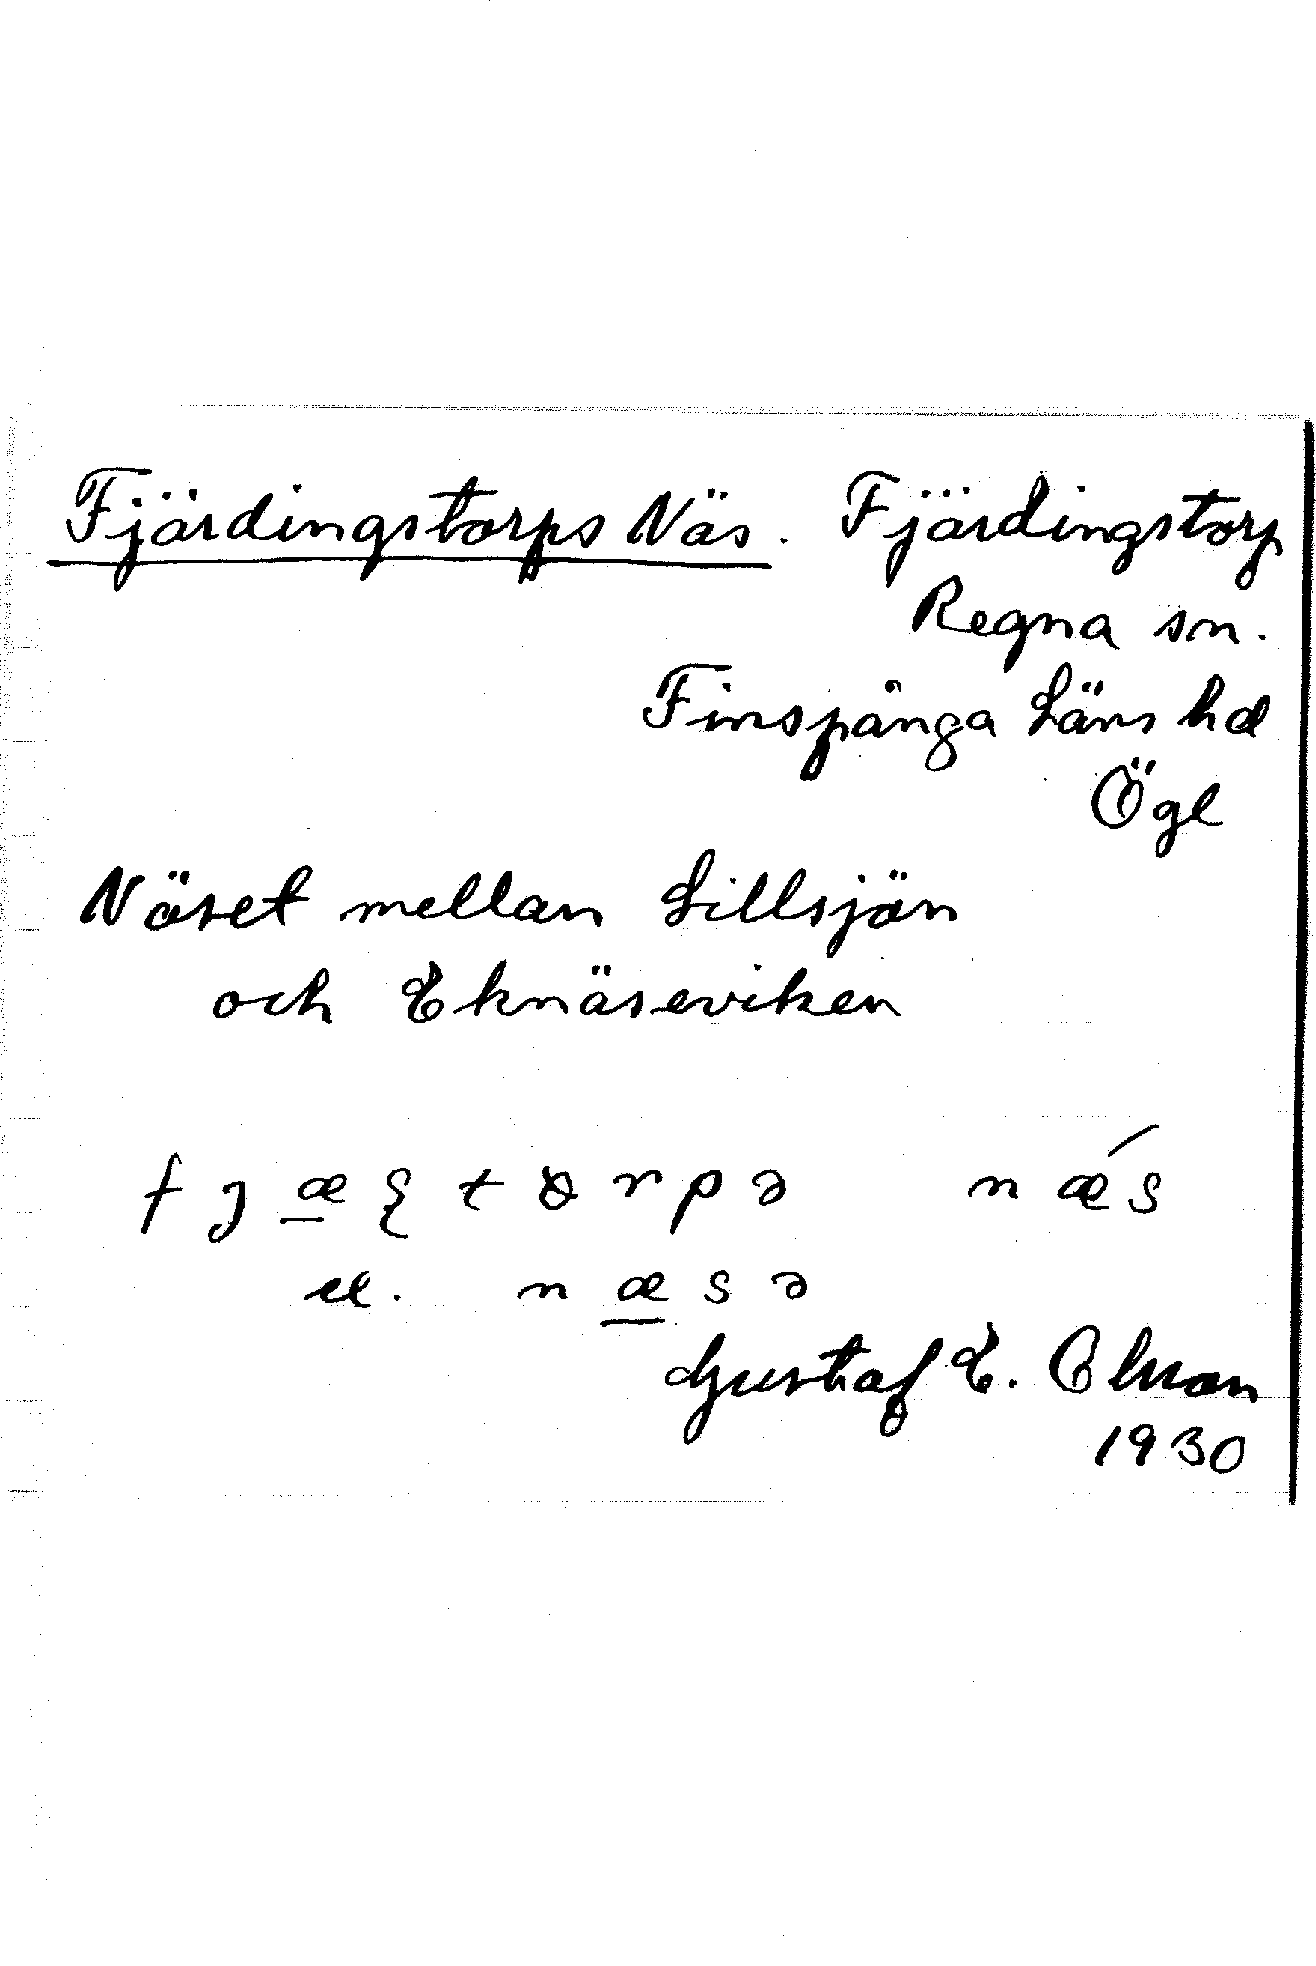 Fjärdingstorps Näs. Fjärdingstorp
Regna sn.
Finspånga Läns hd
Ögl
Näset mellan Lillsjön
och Eknäseviken
f j æ ʂ t ɷ r p ə n ǽ s
el. n æ s ə
Gustaf E.
1930